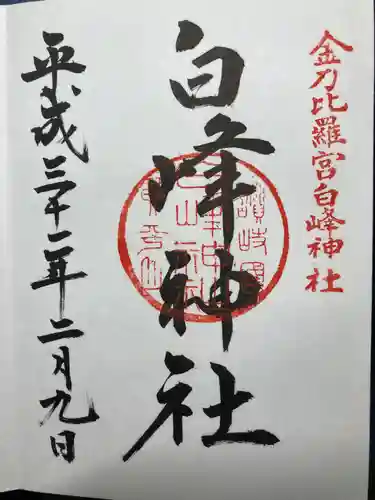 金刀比羅宮白峰神社
白峰神社
讃岐國
平成三十一年二月九日